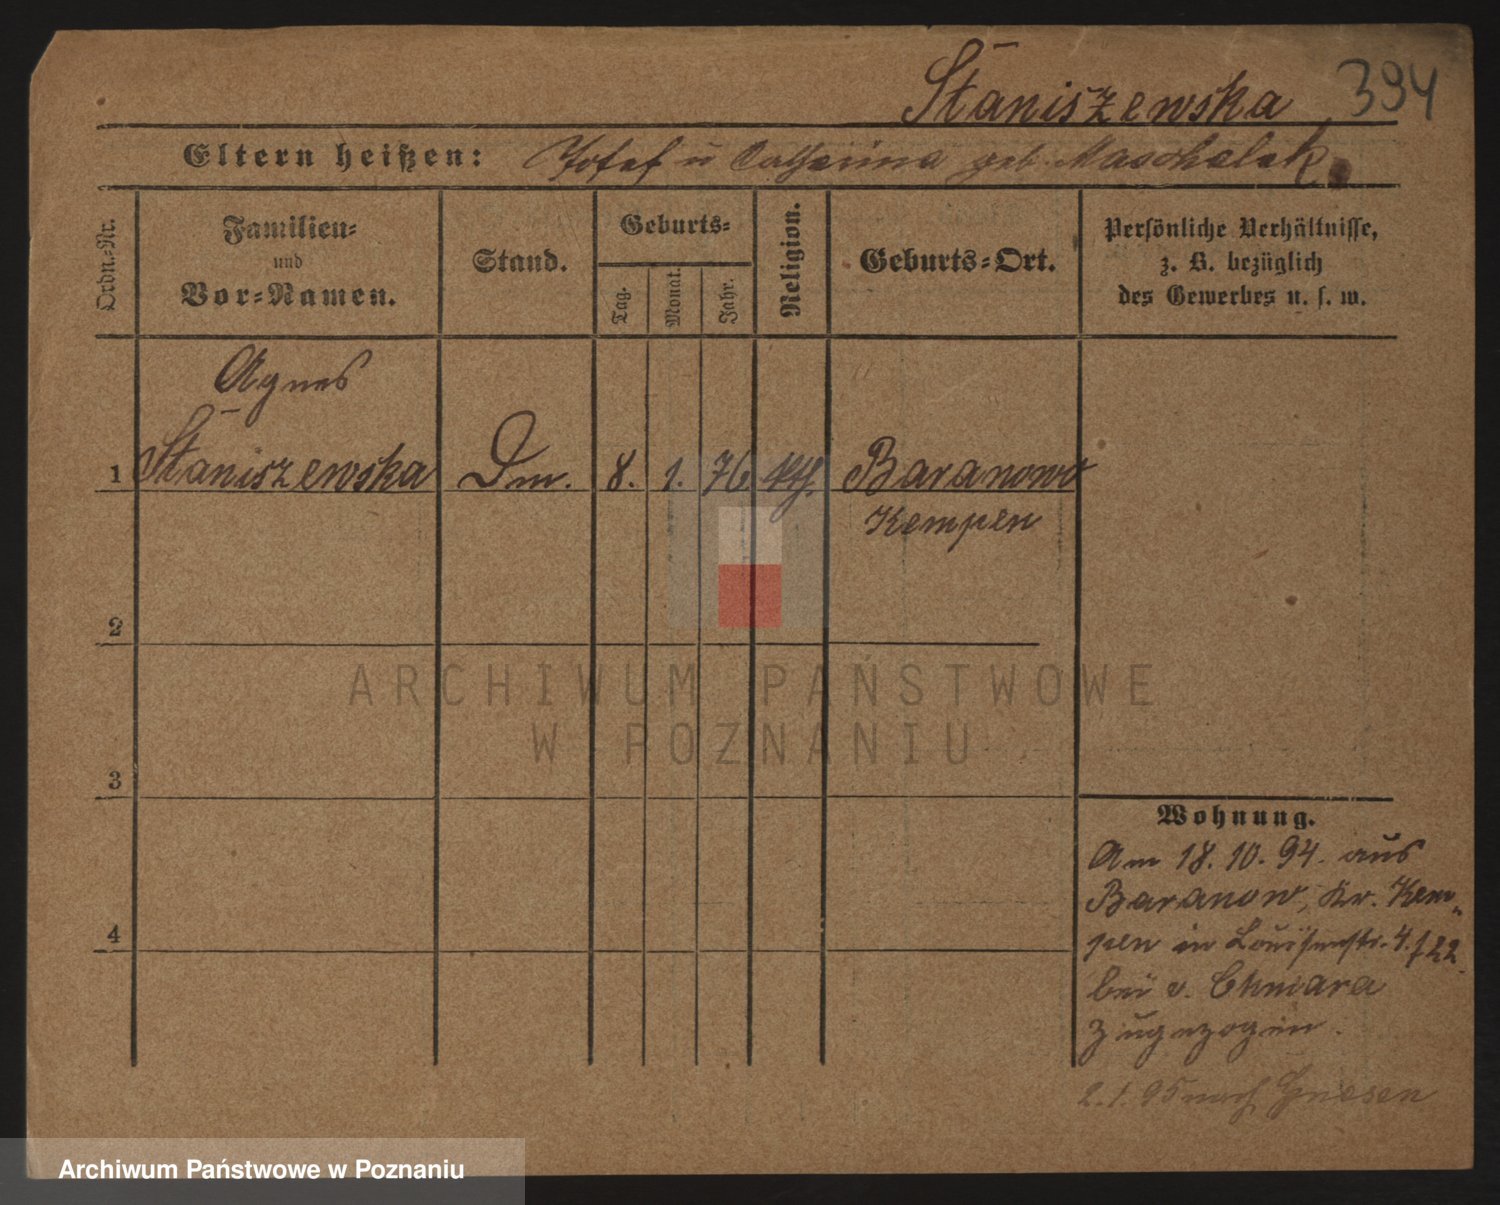 Staniszewska 394
Eltern heißen: Josef u Catharina geb. Maschalek
Ordn.-Nr.
Familien-
und
Vor-Namen.
Stand.
Geburts-
Tag.
Monat.
Jahr.
Religion.
Geburts-Ort.
Persönliche Verhältnisse,
z. B. bezüglich
des Gewerbes u. s. w.
Agnes
1 Staniszewska Dm. 8. 1. 76 kth. Baranowo
Kempen
2
3
4
Wohnung.
Am 18. 10. 94. aus
Baranow, Kr. Kem-
pen in Louisenstr. 4.
bei v. Chmara
zugezogen.
2. 1. 95 nach Gnesen
ARCHIWUM PAŃSTWOWE
W POZNANIU
Archiwum Państwowe w Poznaniu